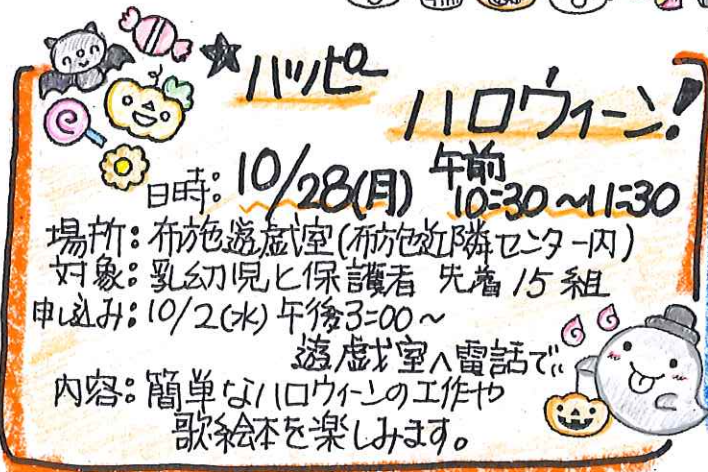 ★ハッピー
ハロウィーン!
日時:10/28(月) 午前
10:30~11:30
場所:布施遊戯室(布施近隣センター内)
対象:乳幼児と保護者 先着15組
申し込み:10/2(水)午後3:00~
遊戯室へ電話で
内容:簡単なハロウィーンの工作や
歌絵本を楽しみます。